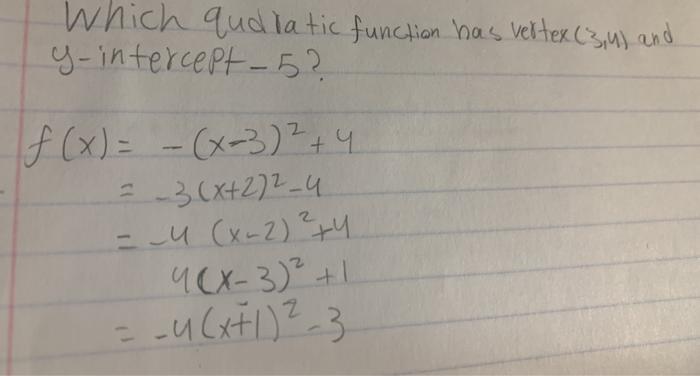 Which qudratic function has vertex (3,4) and
y-intercept -5?
f(x) = -(x-3)²+4
= -3(x+2)²-4
= -4 (x-2)²+4
4(x-3)² +1
= -4(x+1)² -3